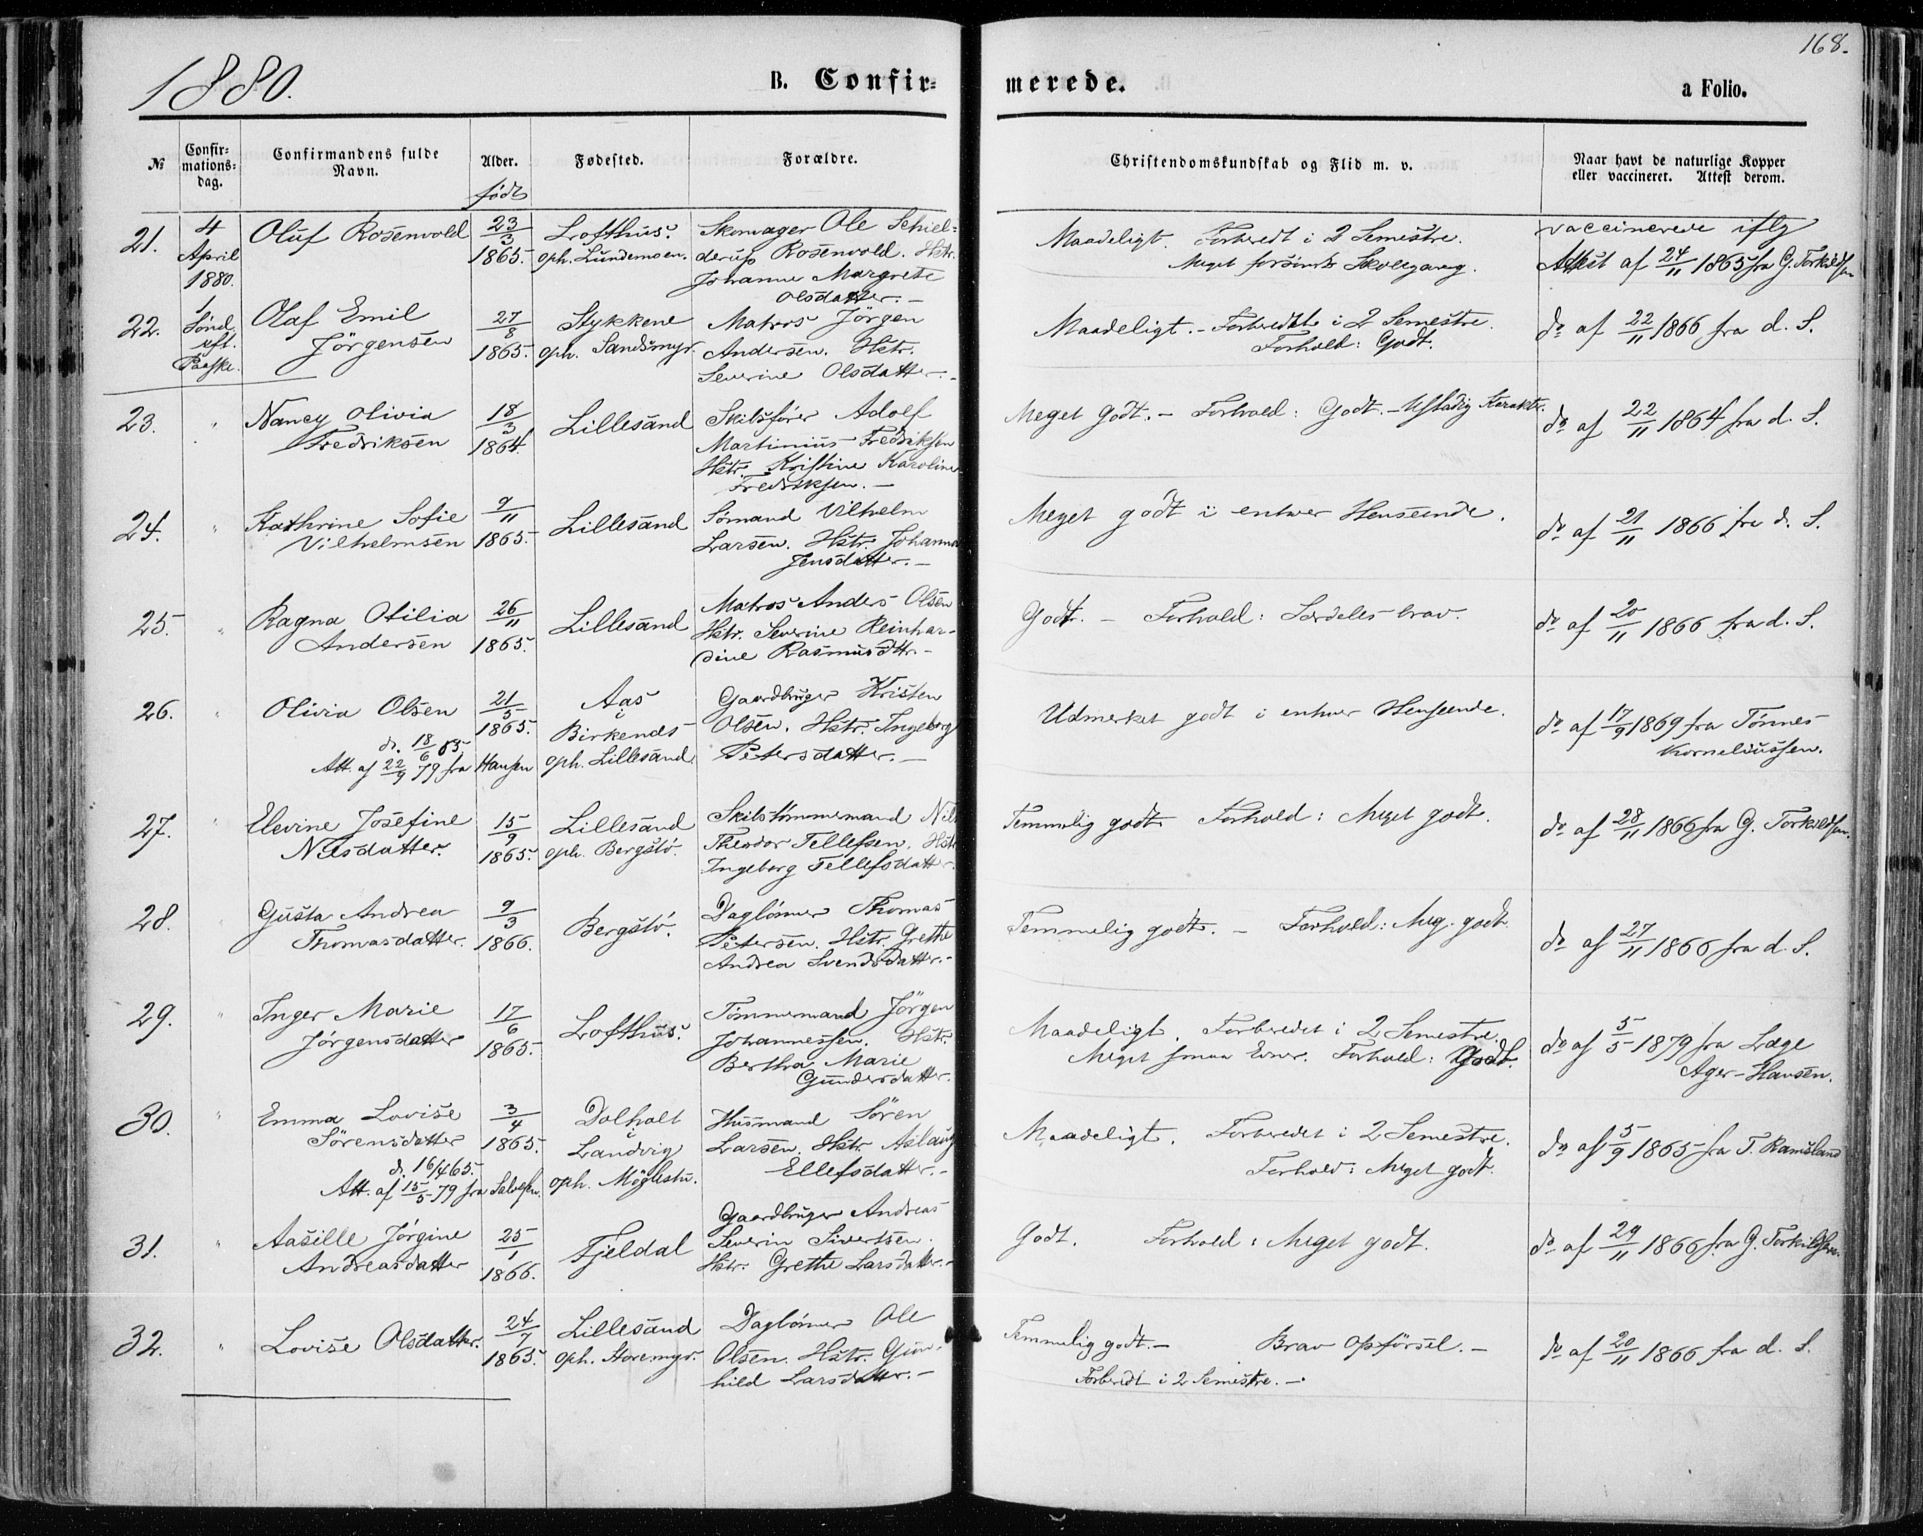 168.
1880.
B. Confir=
merede.
a Folio.
№
Confir=
mations=
dag.
Confirmandens fulde
Navn.
Alder.
født
Fødested.
Forældre.
Christendomskundskab og Flid m. v.
Naar havt de naturlige Kopper
eller vaccineret. Attest derom.
21.
4
April
1880.
1
Sønd.
eft.
Paaske.
Oluf Rosenvold
23/3
1865.
Lofthus.
oph. Lundemoen.
Skomager Ole Schiel-
derup Rosenvold. Hstr.
Johanne Margrete
Olsdatter. —
Maadeligt. Forberedt i 2 Semestre.
Meget forsømt Skolegang.
vaccinerede iflg
Attest af 24/11 1865 fra G. Torkildsen
22.
Olaf Emil
Jörgensen
27/8
1865.
Stykkene
oph. Sandsmyr.
Matros Jörgen
Andersen. Hstr.
Severine Olsdatter. -
Maadeligt. - Forberedt i 2 Semestre.
Forhold: Godt.
do af 22/11 1866 fra d. S.
23.
"
Nancy Olivia
Fredriksen
18/3
1864.
Lillesand
Skibsfører Adolf
Martinius Fredriksen
Hstr. Kristine Karoline
Fredriksen. —
Meget Godt. - Forhold: Godt. - Ustadig Karakt.
do af 22/11 1864 fra d. S.
24.
"
Kathrine Sofie
Vilhelmsen
9/11
1865.
Lillesand
Sømand Vilhelm
Larsen. Hstr. Johanna
Jensdatter. —
Meget godt i enhver Henseende.
do af 21/11 1866 fra d. S.
25.
"
Ragna Otilia
Andersen
26/11
1865.
Lillesand
Matros Anders Olsen
Hstr. Severine Reinhar-
dine Rasmusdttr. -
Godt. — Forhold: Særdeles brav.
do af 20/11 1866 fra d. S.
26.
"
Olivia Olsen
21/5
1865.
d. 18/6 65.
Att. af 22/9 79 fra Hansen
Aas
i
Birkenes
oph. Lillesand.
Gaardbruger Kristen
Olsen. Hstr. Ingeborg
Petersdatter. —
Udmerket godt i enhver Henseende.
do af 17/9 1869 fra Tønnes
Korneliussen.
27.
"
Elevine Josefine
Nilsdatter.
15/9
1865.
Lillesand
oph. Bergstö.
Skibstömmermand Nils
Theodor Tellefsen. Hstr.
Ingeborg Tellefsdatter.
Temmelig godt Forhold: Meget godt.
do af 28/11 1866 fra G. Torkildsen.
28.
"
Gusta Andrea
Thomasdatter.
9/3
1866.
Bergstö.
Daglönner Thomas
Petersen. Hstr. Grethe
Andrea Svendsdatter. -
Temmelig godt. — Forhold: Meg. godt
do af 27/11 1866 fra d. S.
29.
"
Inger Marie
Jörgensdatter
17/6
1865.
Lofthus.
Tömmermand Jörgen
Johannessen. Hstr.
Bertha Marie
Gundersdatter.
Maadeligt. Forberedet i 2 Semestre.
Meget smaa Evner. Forhold: Godt.
do af 5/5 1879 fra Læge
Ager-Hansen.
30.
"
Emma Lovise
Sörensdatter
3/4
1865.
d. 16/4 65.
Att. af 15/5 79 fra Salvesen.
Dolholt
i
Landvig
oph. Möglestu.
Husmand Sören
Larsen. Hstr. Aslaug
Ellefsdatter. -
Maadeligt. Forberedet i 2 Semestre.
Forhold: Meget godt.
do af 5/9 1865 fra T. Ramsland
31.
Aasille Jörgine
Andreasdatter
25/1
1866.
Fjeldal
Gaardbruger Andreas
Severin Sivertsen.
Hstr. Grethe Larsdatter. -
Godt. Forhold: Meget godt.
do af 29/11 1866 fra G. Torkildsen.
32.
"
Lovise Olsdatter.
24/7
1865.
Lillesand
oph. Storemyr.
Daglönner Ole
Olsen. Hstr. Gun-
hild Larsdatter. —
Temmelig godt. — Brav Opførsel. —
Forberedt i 2 Semestre. —
do af 20/11 1866 fra d. S.